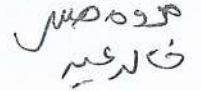 مروه حسن
خالد عيد